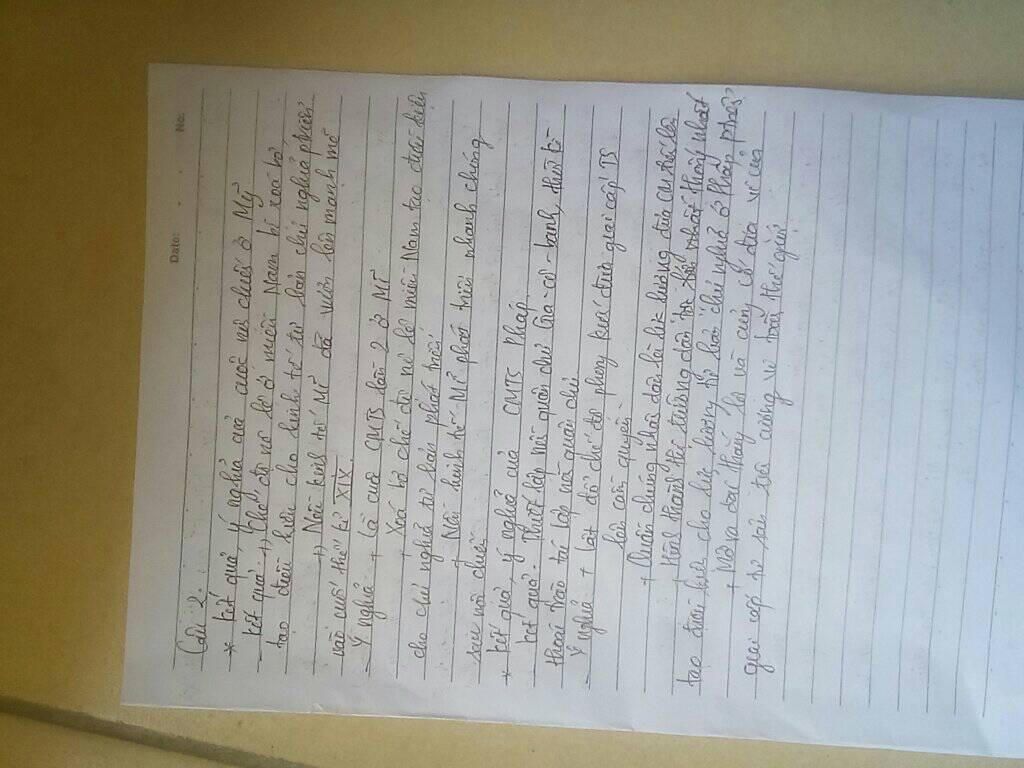 Date:
No:
Câu 2.
* kết quả, ý nghĩa của cuộc nội chiến ở Mỹ
- kết quả: + Chế độ nô lệ ở miền Nam bị xoá bỏ
tạo điều kiện cho kinh tế tư bản chủ nghĩa phát
+ Nền kinh tế Mĩ đã vươn lên mạnh mẽ
vào cuối thế kỉ XIX.
- Ý nghĩa + là cuộc CMTS lần 2 ở Mĩ
+ Xoá bỏ chế độ nô lệ miền Nam tạo điều kiện
cho chủ nghĩa tư bản phát triển
+ Nền kinh tế Mĩ phát triển nhanh chóng
sau nội chiến
* kết quả, ý nghĩa của CMTS Pháp
- kết quả: - Thiết lập nền quân chủ Gia-cô-banh, thời kì
thoái trào tái lập nền quân chủ.
- Ý nghĩa + lật đổ chế độ phong kiến đưa giai cấp TS
lên cầm quyền
+ Quần chúng nhân dân là lực lượng đưa CM
thành thị trường dân tộc thống nhất
tạo điều kiện cho lực lượng tư bản chủ nghĩa ở Pháp phát
+ Mở ra thời đại thắng lợi và củng cố địa vị của
giai cấp tư sản trên phạm vi thế giới